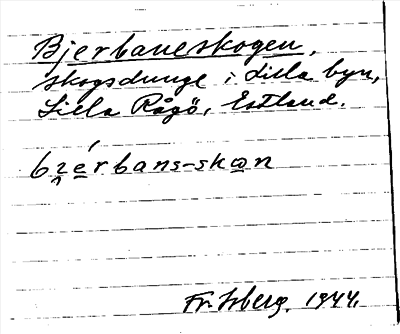 Bjerbaneskogen,
skogsdunge i Lilla byn,
Lilla Rågö, Estland.
bɪ̯érbans-skɷn
1944.